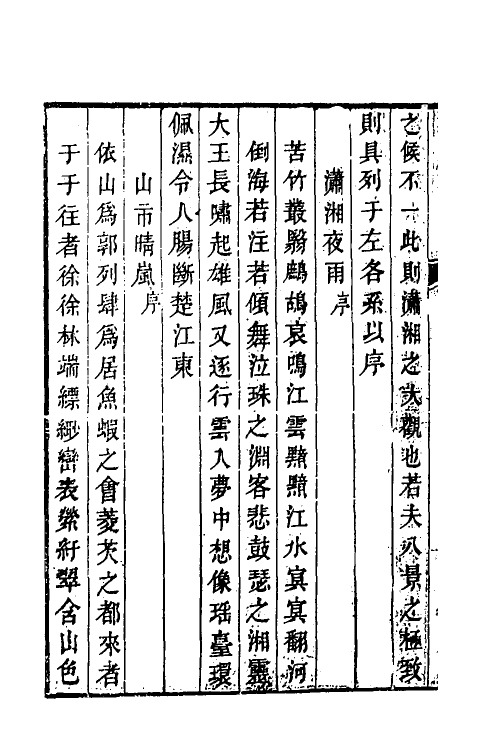 之候不一此則瀟湘之大觀也若夫八景之極致
則具列于左各系以序
瀟湘夜雨序
苦竹叢翳鷓鴣哀鳴江雲黯黯江水冥冥翻河
倒海若注若傾舞泣珠之淵客悲鼓瑟之湘靈
大王長嘯起雄風又逐行雲入夢中想像瑶臺環
佩濕令人腸斷楚江東
山市晴嵐序
依山爲郭列肆爲居魚蝦之會菱芡之都來者
于于往者徐徐林端縹緲巒表縈紆翠含山色